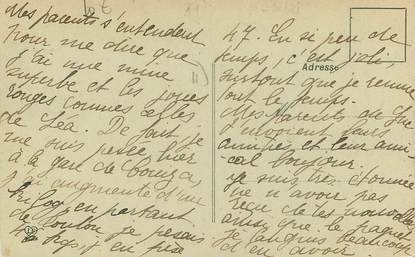 Mes parents s'entendent
pour me dire que
j'ai une mine
superbe et les joues
rouges comme celles
de Léa. De fait je
me suis pesée hier
à la gare de
j'ai augmenté d'un
en partant
de Toulon je pesais
j'en pèse
47. En si peu de
temps, c'est joli,
surtout que je remue
tout le temps.
Mes Parents de
t'envoient leurs
amitiés et leur ami-
cal bonjour.
Je suis très étonnée
de n'avoir pas
reçu de tes nouvelles
ainsi que le paquet
Je languis beaucoup
d'en avoir.
Adresse